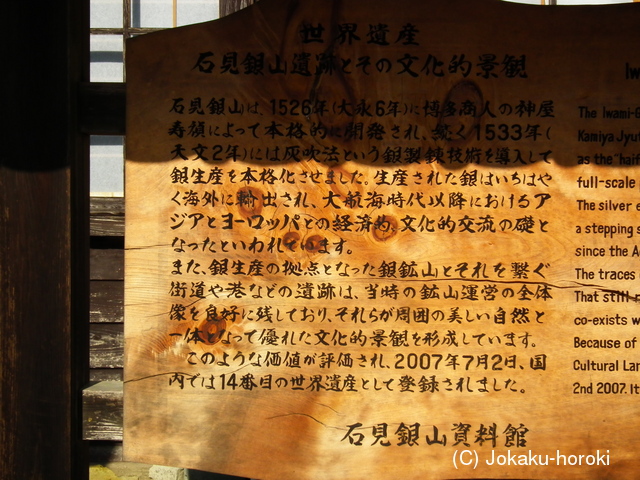 世界遺産
石見銀山遺跡とその文化的景観
石見銀山は、1526年(大永6年)に博多商人の神屋
寿禎によって本格的に開発され、続く1533年(
天文2年)には灰吹法という銀製錬技術を導入して
銀生産を本格化させました。生産された銀はいちはや
く海外に輸出され、大航海時代以降におけるア
ジアとヨーロッパとの経済的、文化的交流の礎と
なったといわれています。
また、銀生産の拠点となった銀鉱山とそれを繋ぐ
街道や港などの遺跡は、当時の鉱山運営の全体
像を良好に残しており、それらが周囲の美しい自然と
一体となって優れた文化的景観を形成しています。
このような価値が評価され、2007年7月2日、国
内では14番目の世界遺産として登録されました。
石見銀山資料館
Iw
The Iwami-G
Kamiya Jyut
as the "hai
full-scale
The silver e
a stepping s
since the A
The traces
That still r
co-exists w
Because of
Cultural Lan
2nd 2007. It
(C) Jokaku-horoki